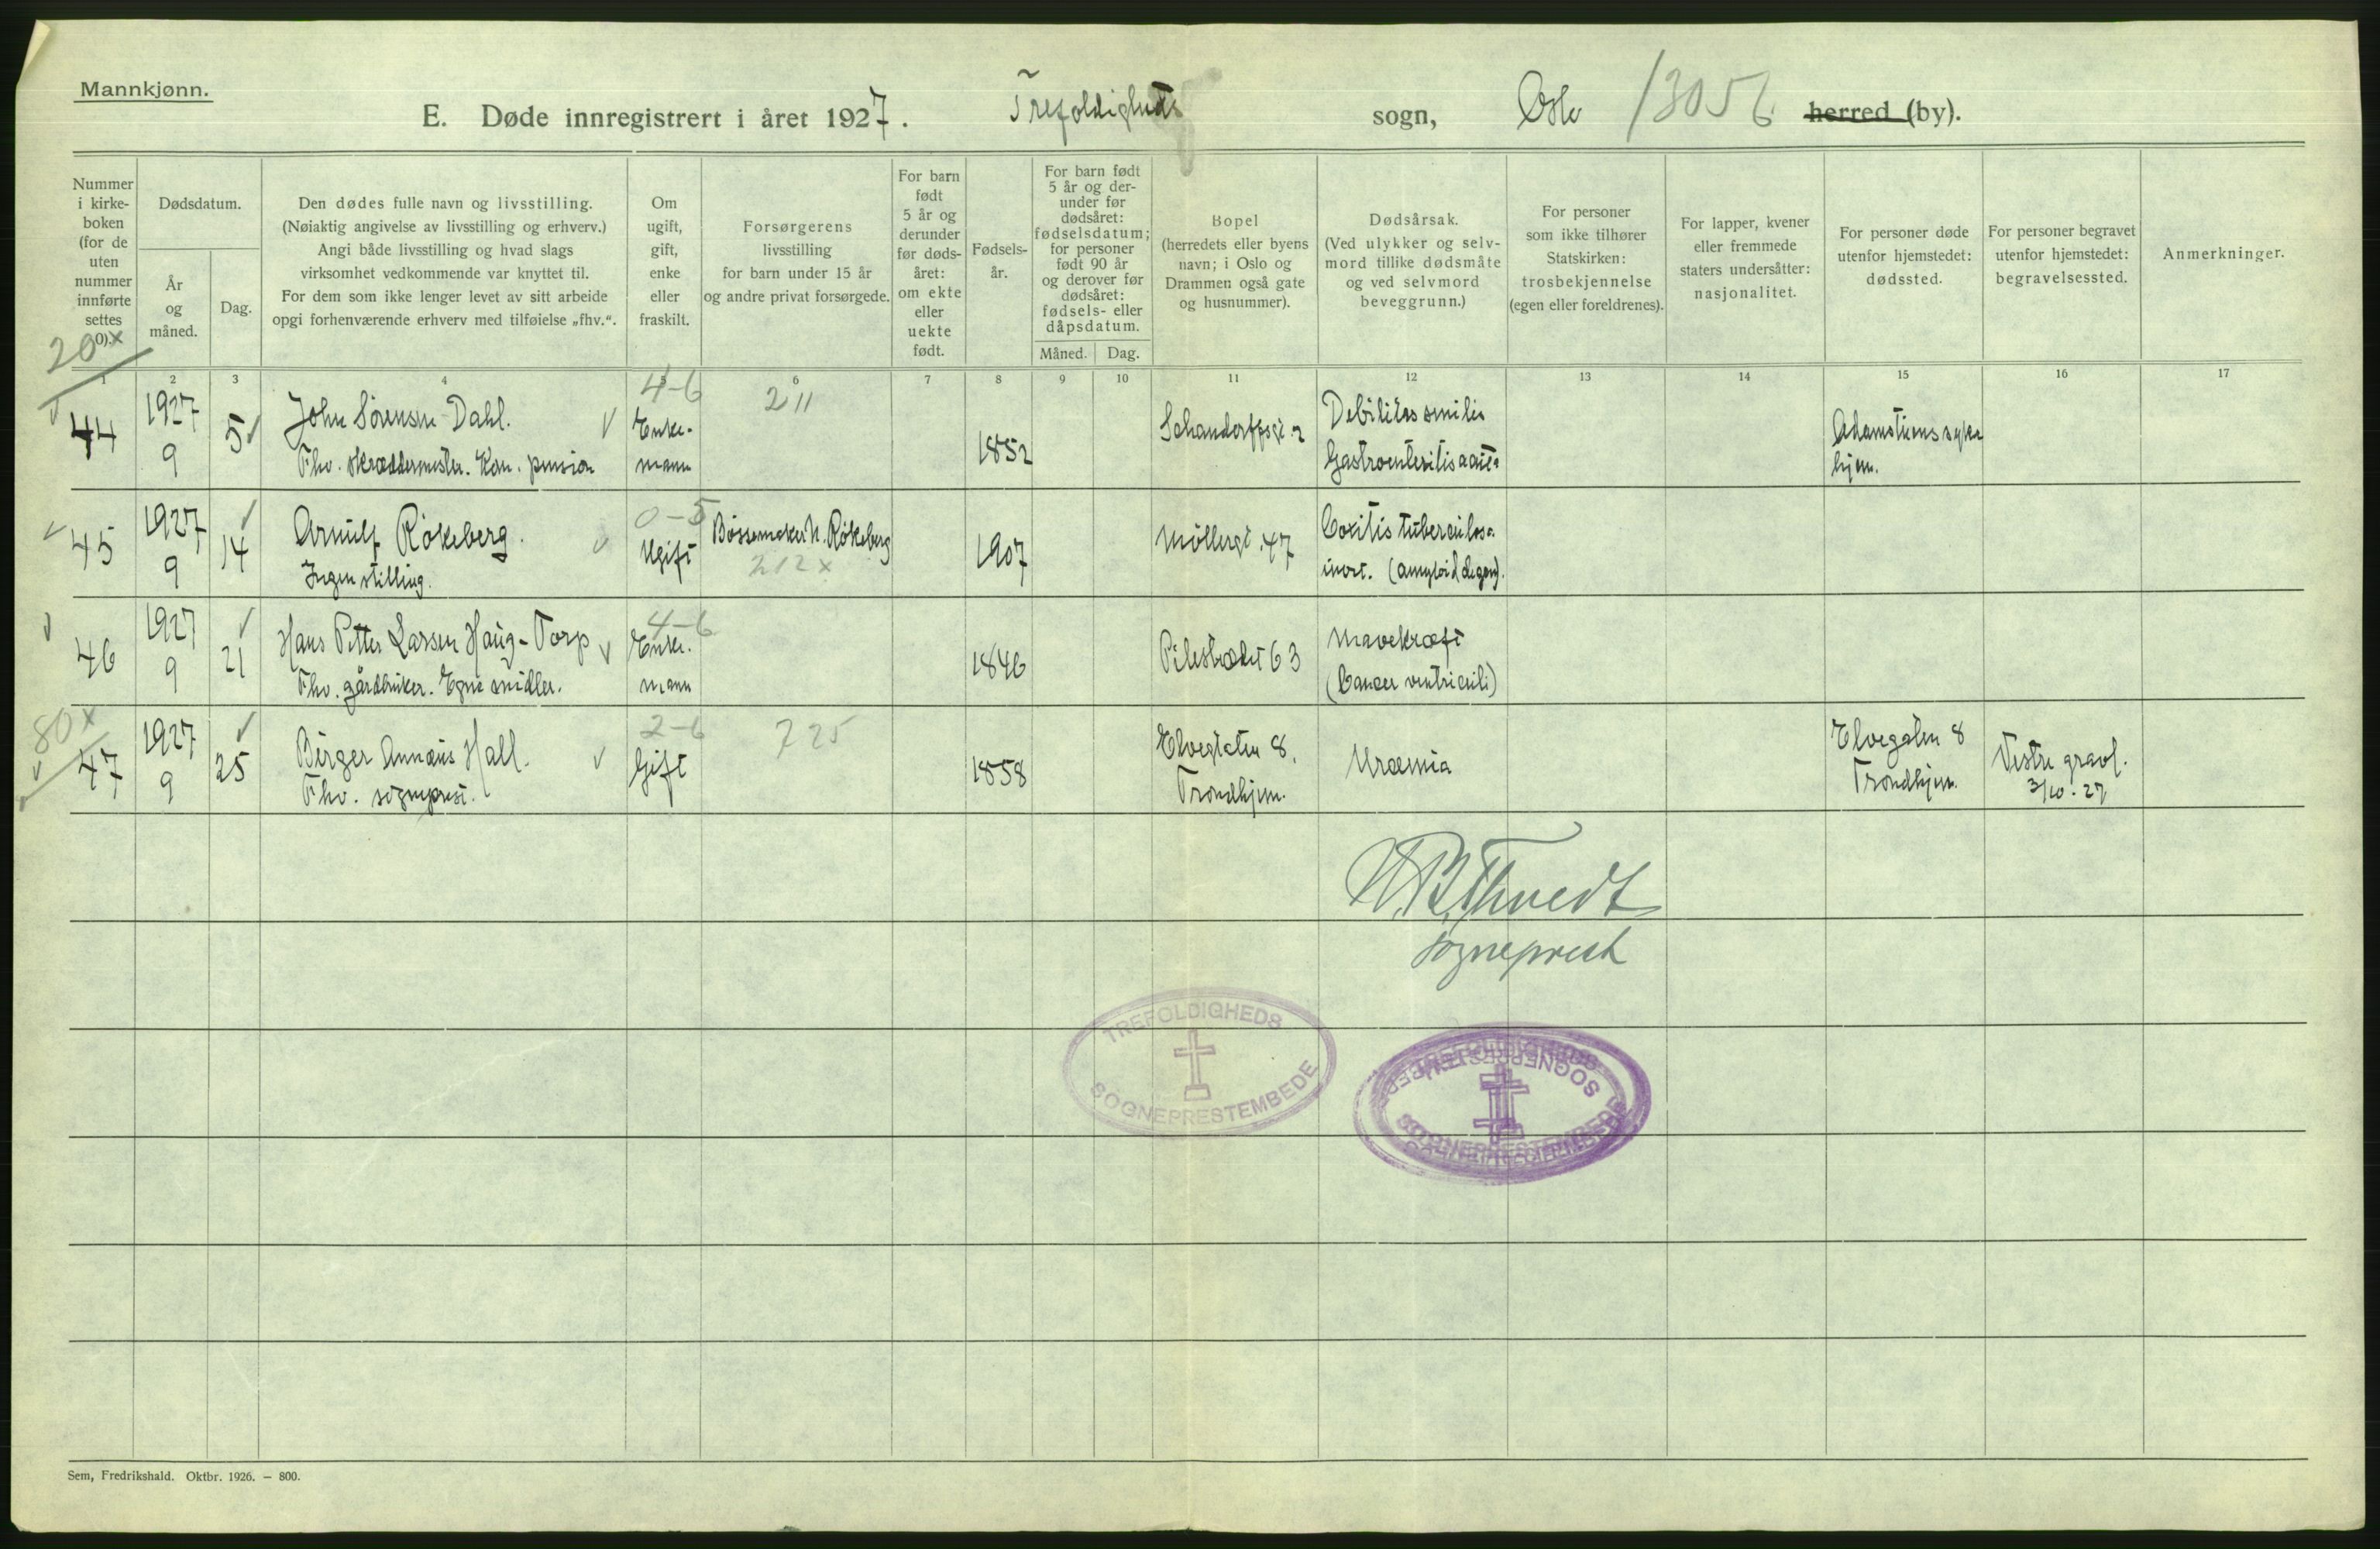 Mannkjønn.
E. Døde innregistrert i året 1927. Trefoldigheds sogn, Oslo 13056 herred (by).
Nummer i kirke-boken (for de uten nummer innførte settes 0).
Dødsdatum.
År og måned.
Dag.
Den dødes fulle navn og livsstilling.
(Nøiaktig angivelse av livsstilling og erhverv.)
Angi både livsstilling og hvad slags
virksomhet vedkommende var knyttet til.
For dem som ikke lenger levet av sitt arbeide
opgi forhenværende erhverv med tilføielse „fhv.“.
Om ugift, gift, enke eller fraskilt.
Forsørgerens
livsstilling
for barn under 15 år
og andre privat forsørgede.
For barn født 5 år og derunder før døds-året: om ekte eller uekte født.
Fødsels-år.
For barn født 5 år og der-under før dødsåret: fødselsdatum; for personer født 90 år og derover før dødsåret: fødsels- eller dåpsdatum.
Måned. Dag.
Bopel
(herredets eller byens
navn; i Oslo og
Drammen også gate
og husnummer).
Dødsårsak.
(Ved ulykker og selv-
mord tillike dødsmåte
og ved selvmord
beveggrunn.)
For personer
som ikke tilhører
Statskirken:
trosbekjennelse
(egen eller foreldrenes).
For lapper, kvener
eller fremmede
staters undersåtter:
nasjonalitet.
For personer døde
utenfor hjemstedet:
dødssted.
For personer begravet
utenfor hjemstedet:
begravelsessted.
Anmerkninger.
20 x
1 2 3 4 5 6 7 8 9 10 11 12 13 14 15 16 17
44 1927 9 5 John Sørensen Dahl.
Fhv. skræddermester. Kom. pension
4-6
Enke-
mann
211
1852
Schandorffsgt. 2
Debilitas senilis
Gastroenteritis acuta
Adamstuens syke
hjem.
45 1927 9 14 Arnulf Rökeberg.
Ingen stilling.
0-5
Ugift
Bössemaker N. Rökeberg
212 x
1907
Möllergt. 47
Coxitis tuberculosa
invet. (amyloid degen).
46 1927 9 21 Hans Petter Larsen Haug-Torp
Fhv. gårdbruker. Egne midler.
4-6
Enke-
mann
1846
Pilestrædet 63
Mavekræft
(Cancer ventriculi)
80 x
47 1927 9 25 Birger Annæus Hall.
Fhv. sogneprest.
2-6
Gift
725
1858
Elvegaten 8.
Trondhjem.
Uræmia
Elvegaten 8
Trondhjem.
Vestre gravl.
3/10-27
sogneprest
TREFOLDIGHEDS
SOGNEPRESTEMBEDE
SOGNEPRESTEMBEDE
Sem, Fredrikshald. Oktbr. 1926. — 800.